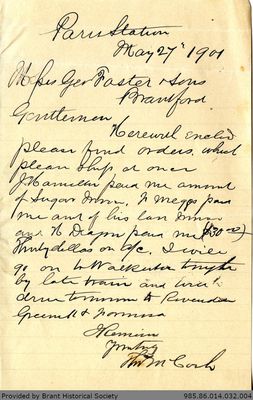 Paris Station
May 27th 1901
Messrs Geo Foster & Sons
Brantford
Gentlemen
Herewith enclosed
please find orders which
please ship at once
J Hamilton paid me amount
of Sugar Invoice. F Meggs paid
me amt of his last Invoice
and N Dragon paid me ($30.00)
Thirty dollars on a/c. I will
go on to Walkerton tonight
by late train and will
drive tomorrow to
& Formosa
I Remain
Yours truly
Thos McCosh
Provided by Brant Historical Society
985.86.014.032.004